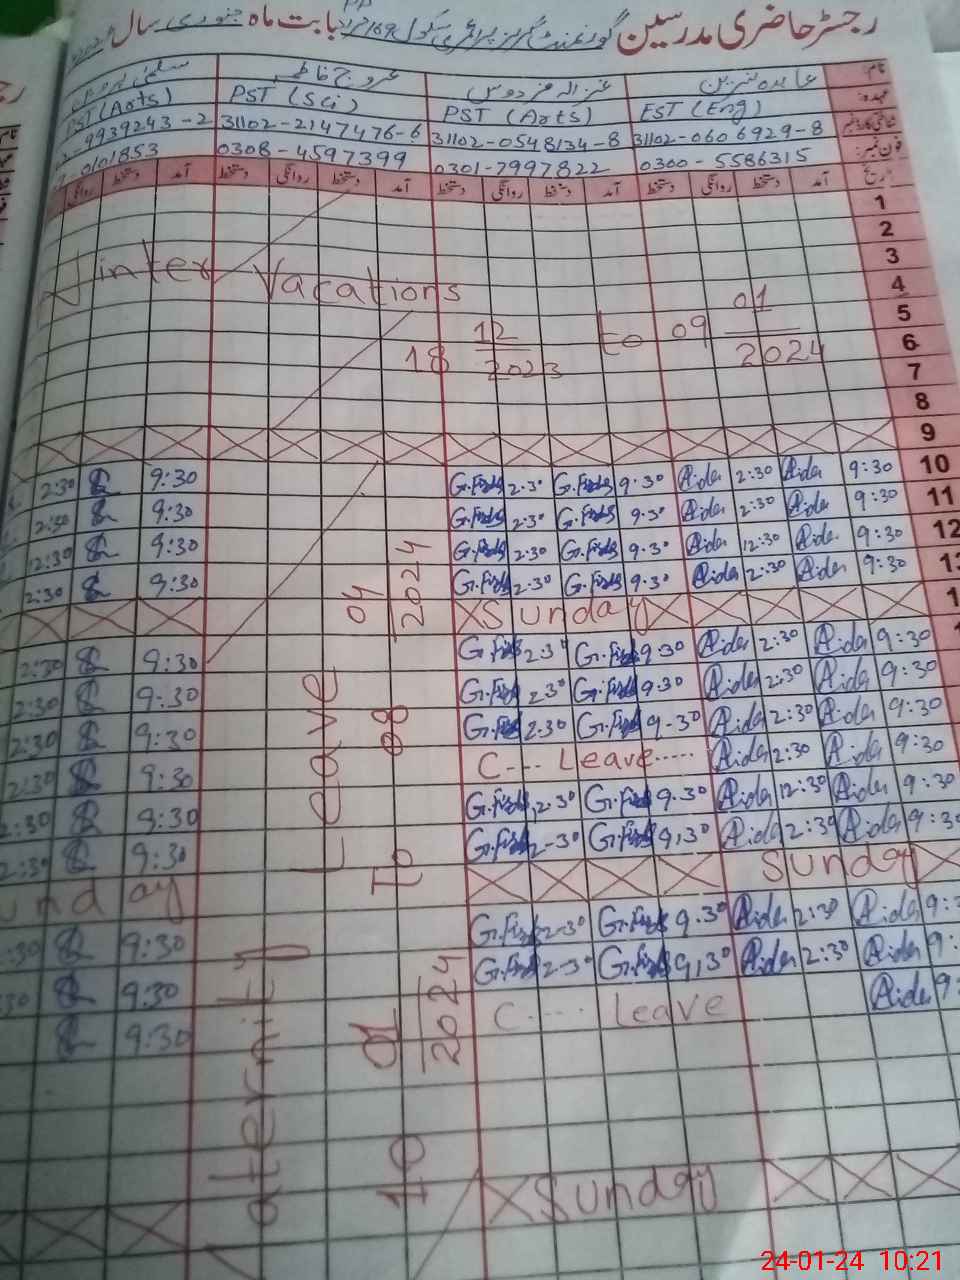 رجسٹر حاضری مدرسین گورنمنٹ گرلز پرائمری سکول بابت ماہ جنوری سال
نام:
عابدہ نسرین
عروج فاطمہ
عہدہ:
EST (Eng)
PST (Arts)
PST (Sci)
PST (Arts)
31102-0606929-8
31102-0548134-8
31102-2147476-6
-9939243-2
فون نمبر:
0300-5586315
0301-7997822
0308-4597399
-0101853
تاریخ
آمد دستخط روانگی دستخط آمد دستخط روانگی دستخط آمد دستخط روانگی دستخط آمد دستخط روانگی
1
2
3
4
5
6
7
8
9
Winter Vacations
18 12/2023 to 09 01/2024
10 9:30 Aida 2:30 Aida 9:30 G.Firds 2:30 G.Firds 9:30 2:30
11 9:30 Aida 2:30 Aida 9:30 G.Firds 2:30 G.Firds 9:30 2:30
12 9:30 Aida 12:30 Aida 9:30 G.Firds 2:30 G.Firds 9:30 12:30
13 9:30 Aida 2:30 Aida 9:30 G.Firds 2:30 G.Firds 9:30 2:30
Sunday
9:30 Aida 2:30 Aida 9:30 G.Firds 2:30 G.Firds 9:30 2:30
9:30 Aida 2:30 Aida 9:30 G.Firds 2:30 G.Firds 9:30 2:30
9:30 Aida 2:30 Aida 9-30 G.Firds 2:30 G.Firds 9:30 2:30
9:30 Aida 2:30 Aida C---- Leave...... 9:30 2:30
9:30 Aida 12:30 Aida 9:30 G.Firds 2:30 G.Firds 9:30 2:30
9:30 Aida 2:30 Aida 9,30 G.Firds 2-30 G.Firds 9:30 2:30
Sunday
unday
9: Aida 2:30 Aida 9:30 G.Firds 2-30 G.Firds 9:30 :30
9: Aida 2:30 Aida 9,30 G.Firds 2-30 G.Firds 9:30 :30
9 Aida C---- Leave 9:30
Sunday
aternity Leave
10 01/2024 To 08 04/2024
24-01-24 10:21